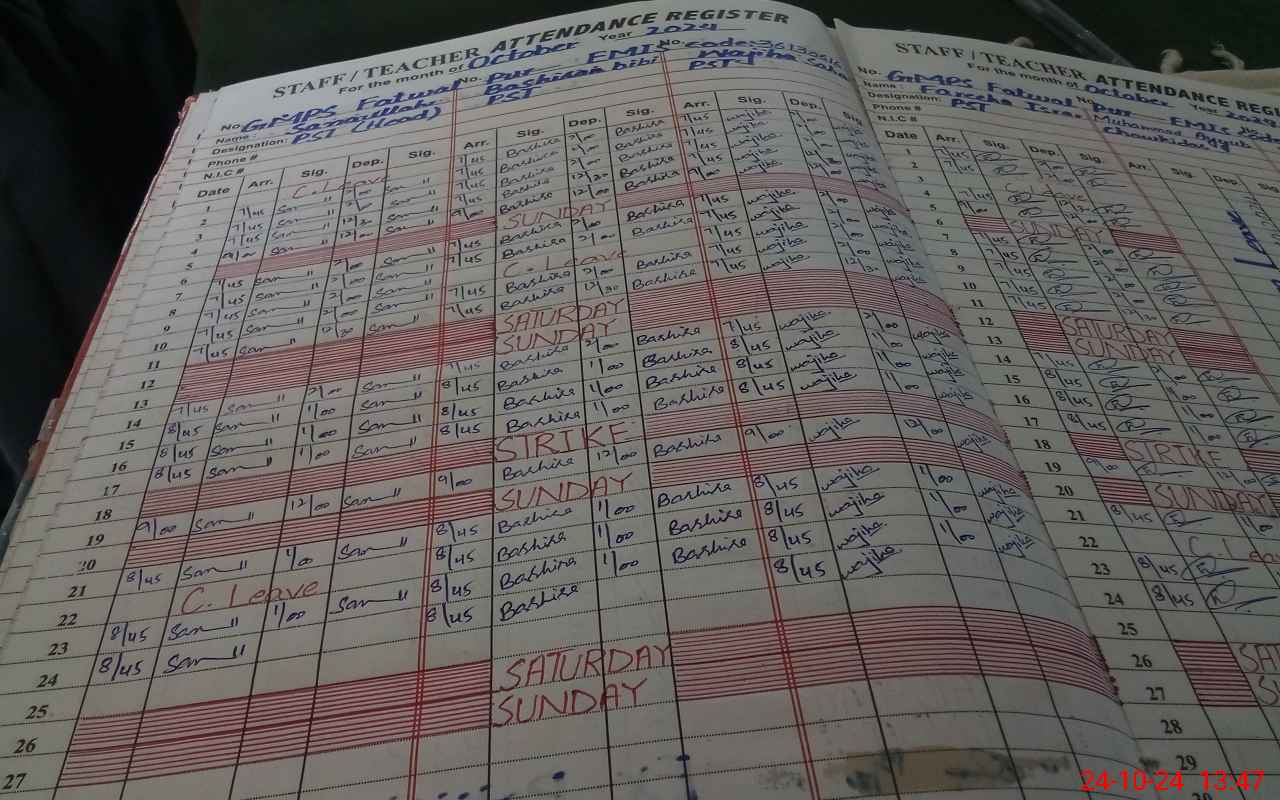 STAFF / TEACHER ATTENDANCE REGISTER
For the month of October Year 2024
No. GMPS Fatwal Pur EMIS No. code:
Name: Samiullah Bashiran bibi Wajiha
Designation: PST (Head) PST PST
Phone #
N.I.C #
Date Arr. Sig. Dep. Sig. Arr. Sig. Dep. Sig. Arr. Sig. Dep. Sig.
1 C. Leave 7/45 Bashira 2/00 Bashira 7/45 wajiha
2 7/45 Sam 2/00 Sam 7/45 Bashira 2/00 Bashira 7/45 wajiha
3 7/45 Sam 2/00 Sam 7/45 Bashira 2/00 Bashira 7/45 wajiha
4 7/45 Sam 12/30 Sam 7/45 Bashira 12/30 Bashira 7/45 wajiha
5 9/00 Sam 12/00 Sam 9/00 Bashira 12/00 Bashira 9/00 wajiha
6 SUNDAY
7 7/45 Sam 2/00 Sam 7/45 Bashira 2/00 Bashira 7/45 wajiha 2/00 wajiha
8 7/45 Sam 2/00 Sam 7/45 Bashira 2/00 Bashira 7/45 wajiha 2/00 wajiha
9 7/45 Sam 2/00 Sam C. Leave 7/45 wajiha 2/00 wajiha
10 7/45 Sam 2/00 Sam 7/45 Bashira 2/00 Bashira 7/45 wajiha 2/00 wajiha
11 7/45 Sam 12/30 Sam 7/45 Bashira 12/30 Bashira 7/45 wajiha 12/30 wajiha
12 SATURDAY
13 SUNDAY
14 7/45 Sam 2/00 Sam 7/45 Bashira 2/00 Bashira 7/45 wajiha 2/00 wajiha
15 8/45 Sam 1/00 Sam 8/45 Bashira 1/00 Bashira 8/45 wajiha 1/00 wajiha
16 8/45 Sam 1/00 Sam 8/45 Bashira 1/00 Bashira 8/45 wajiha 1/00 wajiha
17 8/45 Sam 1/00 Sam 8/45 Bashira 1/00 Bashira 8/45 wajiha 1/00 wajiha
18 STRIKE
19 9/00 Sam 12/00 Sam 9/00 Bashira 12/00 Bashira 9/00 wajiha 12/00 wajiha
20 SUNDAY
21 8/45 Sam 1/00 Sam 8/45 Bashira 1/00 Bashira 8/45 wajiha 1/00 wajiha
22 C. Leave 8/45 Bashira 1/00 Bashira 8/45 wajiha 1/00 wajiha
23 8/45 Sam 1/00 Sam 8/45 Bashira 1/00 Bashira 8/45 wajiha 1/00 wajiha
24 8/45 Sam 8/45 Bashira 8/45 wajiha
25
26 SATURDAY
27 SUNDAY
STAFF / TEACHER ATTENDANCE REGI
For the month of October Year 2024
No. GMPS Fatwal Pur EMIS
Name: Muhammad Ayyub
Designation: PST Chowkidar
Phone #
N.I.C #
Date Arr. Sig. Dep. Sig. Arr. Sig. Dep.
1 7/45
2 7/45
3
4 C. Leave
5 9/00
6 SUNDAY
7 7/45
8 7/45
9 7/45
10 7/45
11 7/45
12 SATURDAY
13 SUNDAY
14 7/45 2/00
15 8/45 1/00
16 8/45 1/00
17 8/45 1/00
18 STRIKE
19 9/00 12/00
20 SUNDAY
21 8/45 1/00
22 C. Lea
23 8/45
24 8/45
25
26 SA
27 SU
28
29
24-10-24 13:47